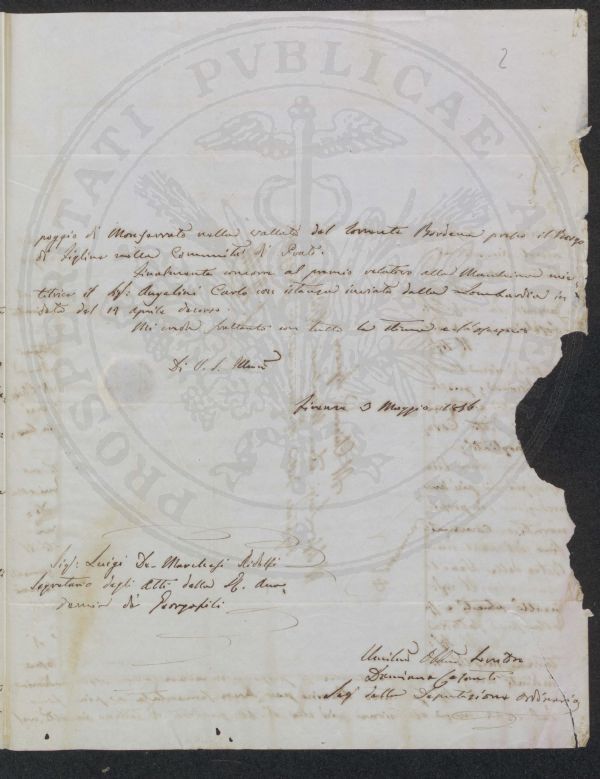 2
poggio di Monferrato nella vallata del torrente Bardena presso il Borgo
di Figline nella Comunità di Prato.
Finalmente concorre al premio relativo alla Macchina mie
titrice il Sig: Angelini Carlo con istanza inviata dalla Lombardia in
data del 19 Aprile decorso.
Mi creda pertanto con tutta la stima e l'ossequio
Di V. S. Illma
Firenze 3 Maggio 1856
Sig: Luigi De Marchesi Ridolfi
Segretario degli Atti della R. Acca
demia de' Georgofili
Umilmo
Damiano
Segr della Deputazione ordinaria
PROSPERITATI PVBLICAE AVGENDAE